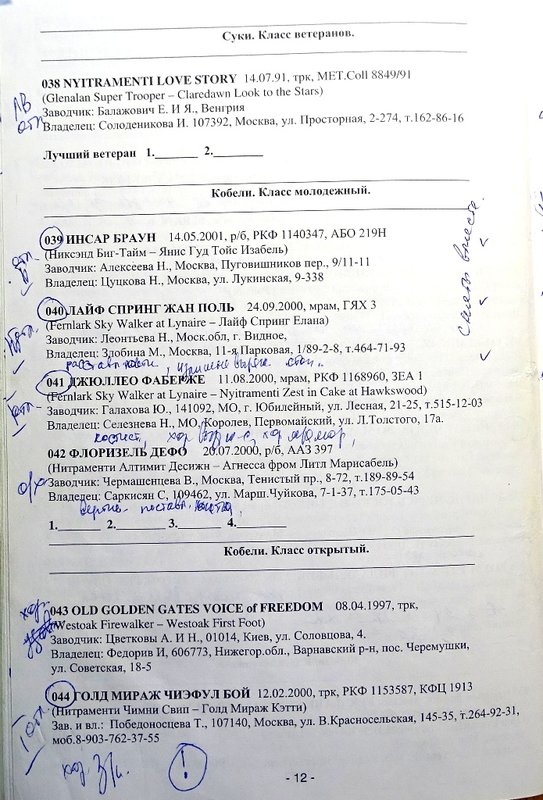 Суки. Класс ветеранов.
038 NYITRAMENTI LOVE STORY 14.07.91, трк, MET.Coll 8849/91
(Glenalan Super Trooper – Claredawn Look to the Stars)
Заводчик: Балажович Е. И Я., Венгрия
Владелец: Солоденикова И. 107392, Москва, ул. Просторная, 2-274, т.162-86-16
Лучший ветеран 1.______ 2.______
Кобели. Класс молодежный.
039 ИНСАР БРАУН 14.05.2001, р/б, РКФ 1140347, АБО 219Н
(Никсэнд Биг-Тайм – Янис Гуд Тойс Изабель)
Заводчик: Алексеева Н., Москва, Пуговишников пер., 9/11-11
Владелец: Цуцкова Н., Москва, ул. Лукинская, 9-338
040 ЛАЙФ СПРИНГ ЖАН ПОЛЬ 24.09.2000, мрам, ГЯХ 3
(Fernlark Sky Walker at Lynaire – Лайф Спринг Елана)
Заводчик: Леонтьева Н., Моск.обл, г. Видное,
Владелец: Злобина М., Москва, 11-я Парковая, 1/89-2-8, т.464-71-93
041 ДЖЮЛЛЕО ФАБЕРЖЕ 11.08.2000, мрам, РКФ 1168960, ЗЕА 1
(Fernlark Sky Walker at Lynaire – Nyitramenti Zest in Cake at Hawkswood)
Заводчик: Галахова Ю., 141092, МО, г. Юбилейный, ул. Лесная, 21-25, т.515-12-03
Владелец: Селезнева Н., МО, Королев, Первомайский, ул. Л.Толстого, 17а.
042 ФЛОРИЗЕЛЬ ДЕФО 20.07.2000, р/б, ААЗ 397
(Нитраменти Алтимит Десижн – Агнесса фром Литл Марисабель)
Заводчик: Чермашенцева В., Москва, Тенистый пр., 8-72, т.189-89-54
о/х
Владелец: Саркисян С, 109462, ул. Марш.Чуйкова, 7-1-37, т.175-05-43
1.______ 2.________ 3.______ 4.________
Кобели. Класс открытый.
хор.
043 OLD GOLDEN GATES VOICE of FREEDOM 08.04.1997, трк,
(Westoak Firewalker – Westoak First Foot)
Заводчик: Цветковы А. И Н., 01014, Киев, ул. Соловцова, 4.
Владелец: Федорив И, 606773, Нижегор.обл., Варнавский р-н, пос. Черемушки,
ул. Советская, 18-5
044 ГОЛД МИРАЖ ЧИЭФУЛ БОЙ 12.02.2000, трк, РКФ 1153587, КФЦ 1913
(Нитраменти Чимни Свип – Голд Мираж Кэтти)
Зав. и вл.: Победоносцева Т., 107140, Москва, ул. В.Красносельская, 145-35, т.264-92-31,
моб.8-903-762-37-55
!
- 12 -